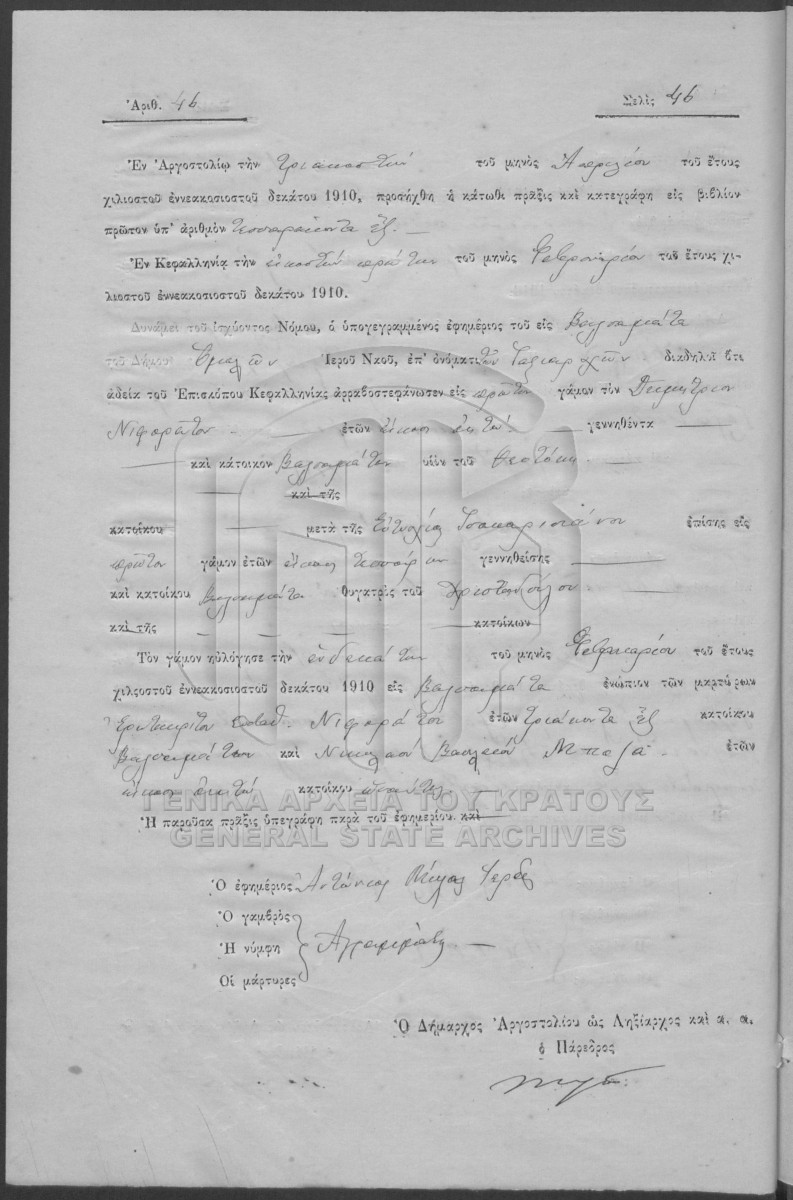 Ἀριθ. 46 Σελὶς 46
Ἐν Ἀργοστολίῳ τὴν τριακοστὴν τοῦ μηνὸς Ἀπριλίου τοῦ ἔτους
χιλιοστοῦ ἐννεακοσιοστοῦ δεκάτου 1910, προσήχθη ἡ κάτωθι πρᾶξις καὶ κατεγράφη εἰς βιβλίον
πρῶτον ὑπ' ἀριθμὸν τεσσαράκοντα ἕξ. —
Ἐν Κεφαλληνίᾳ τὴν εἰκοστὴν πρώτην τοῦ μηνὸς Φεβρουαρίου τοῦ ἔτους χι-
λιοστοῦ ἐννεακοσιοστοῦ δεκάτου 1910.
Δυνάμει τοῦ ἰσχύοντος Νόμου, ὁ ὑπογεγραμμένος ἐφημέριος τοῦ εἰς Βαλσαμάτα
τοῦ Δήμου Ὁμαλῶν Ἱεροῦ Ναοῦ, ἐπ' ὀνόματι τῶν Ταξιαρχῶν διαδηλοῖ ὅτι
ἀδείᾳ τοῦ Ἐπισκόπου Κεφαλληνίας ἀρραβοστεφάνωσεν εἰς πρῶτον γάμον τὸν Δημήτριον
Νιφορᾶτον — ἐτῶν εἴκοσι ὀκτώ — γεννηθέντα —
— καὶ κάτοικον Βαλσαμάτων υἱὸν τοῦ Θεοτόκη —
— καὶ τῆς
κατοίκου — μετὰ τῆς Εὐτυχίας Τσακαρισιάνου ἐπίσης εἰς
πρῶτον γάμον ἐτῶν εἴκοσι τεσσάρων γεννηθείσης —
καὶ κατοίκου Βαλσαμάτα θυγατρὸς τοῦ Χριστοδούλου —
καὶ τῆς — — — — κατοίκων —
Τὸν γάμον ηὐλόγησε τὴν ἑνδεκάτην τοῦ μηνὸς Φεβρουαρίου τοῦ ἔτους
χιλιοστοῦ ἐννεακοσιοστοῦ δεκάτου 1910 εἰς Βαλσαμάτα ἐνώπιον τῶν μαρτύρων
Σπυρ. Νιφοράτου ἐτῶν τριάκοντα ἕξ κατοίκου
Βαλσαμάτων καὶ Νικολάου Βασιλείου Μπαζά ἐτῶν
εἴκοσι ὀκτώ κατοίκου ὡσαύτως —
Ἡ παροῦσα πρᾶξις ὑπεγράφη παρὰ τοῦ ἐφημερίου καὶ —
ΓΕΝΙΚΑ ΑΡΧΕΙΑ ΤΟΥ ΚΡΑΤΟΥΣ
GENERAL STATE ARCHIVES
Ὁ ἐφημέριος Ἀντώνιος Ἱερεύς
Ὁ γαμβρὸς
Ἡ νύμφη Ἀγράμματοι —
Οἱ μάρτυρες
Ὁ Δήμαρχος Ἀργοστολίου ὡς Ληξίαρχος καὶ α. α.
ὁ Πάρεδρος